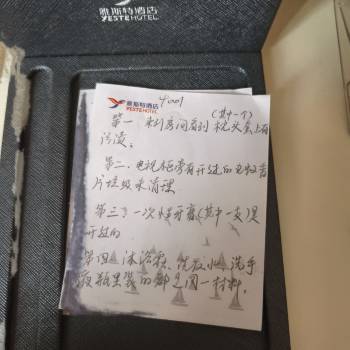 雅斯特酒店
YESTE HOTEL
雅斯特酒店
YESTE HOTEL
4001
(其中一个)
第一 来到房间看到枕头套上有
污渍。
第二.电视柜旁有开过的电蚊香
片垃圾未清理
第三,一次性牙膏(其中一支)是
开过的
第四.沐浴露、洗发水、洗手
液瓶里装的都是同一材料.